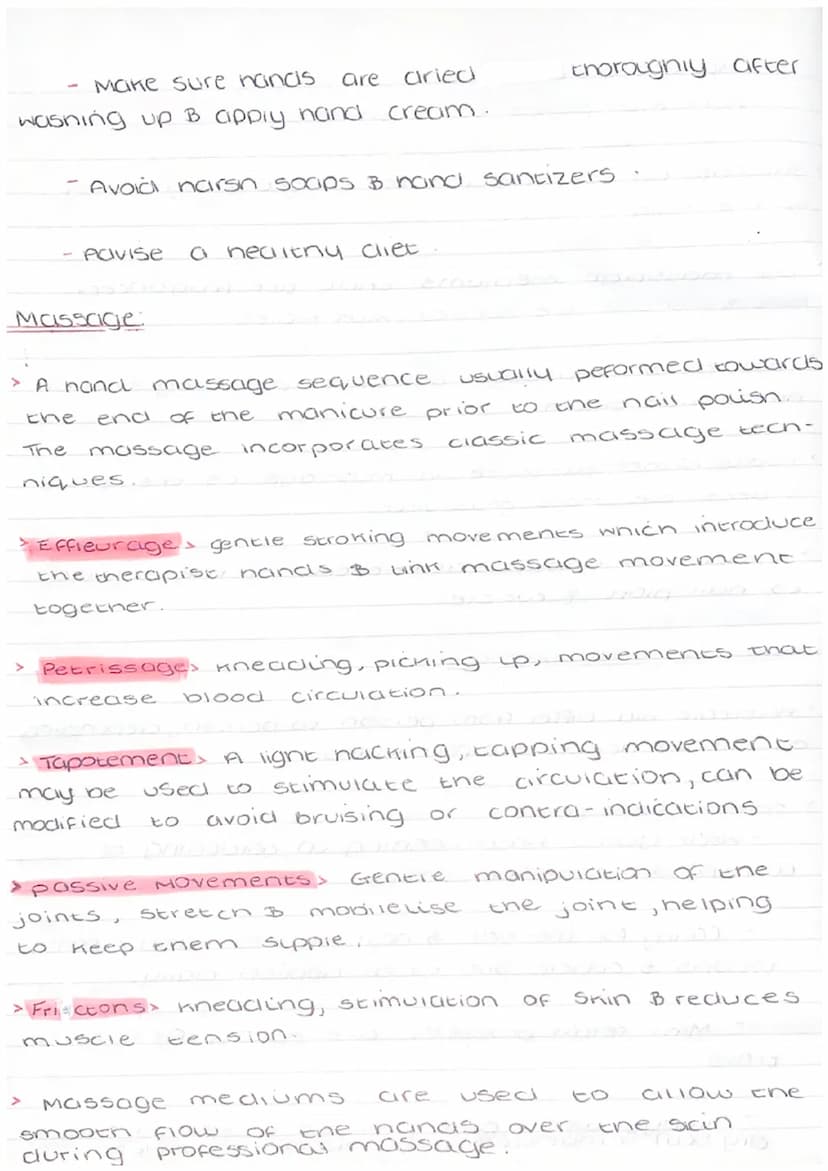 - Make sure hands are dried thoroughly after
washing up & apply hand cream.
- Avoid harsh soaps & hand santizers.
- Advise a healthy diet.
Massage:
> A hand massage sequence usually peformed towards
the end of the manicure prior to the nail polish.
The massage incorporates classic massage tech-
niques.
> Effleurage > gentle stroking movements which introduce
the therapist hands & link massage movement
together.
> Petrissage > kneading, picking up, movements that
increase blood circulation.
> Tapotement > A light hacking, tapping movement
may be used to stimulate the circulation, can be
modified to avoid bruising or contra-indications
> passive Movements > Gentle manipulation of the
joints, stretch & mobilelise the joint, helping
to keep them supple.
> Frictons > kneading, stimulation of skin & reduces
muscle tension.
> Massage mediums are used to allow the
smooth flow of the hands over the scin
during professional massage.